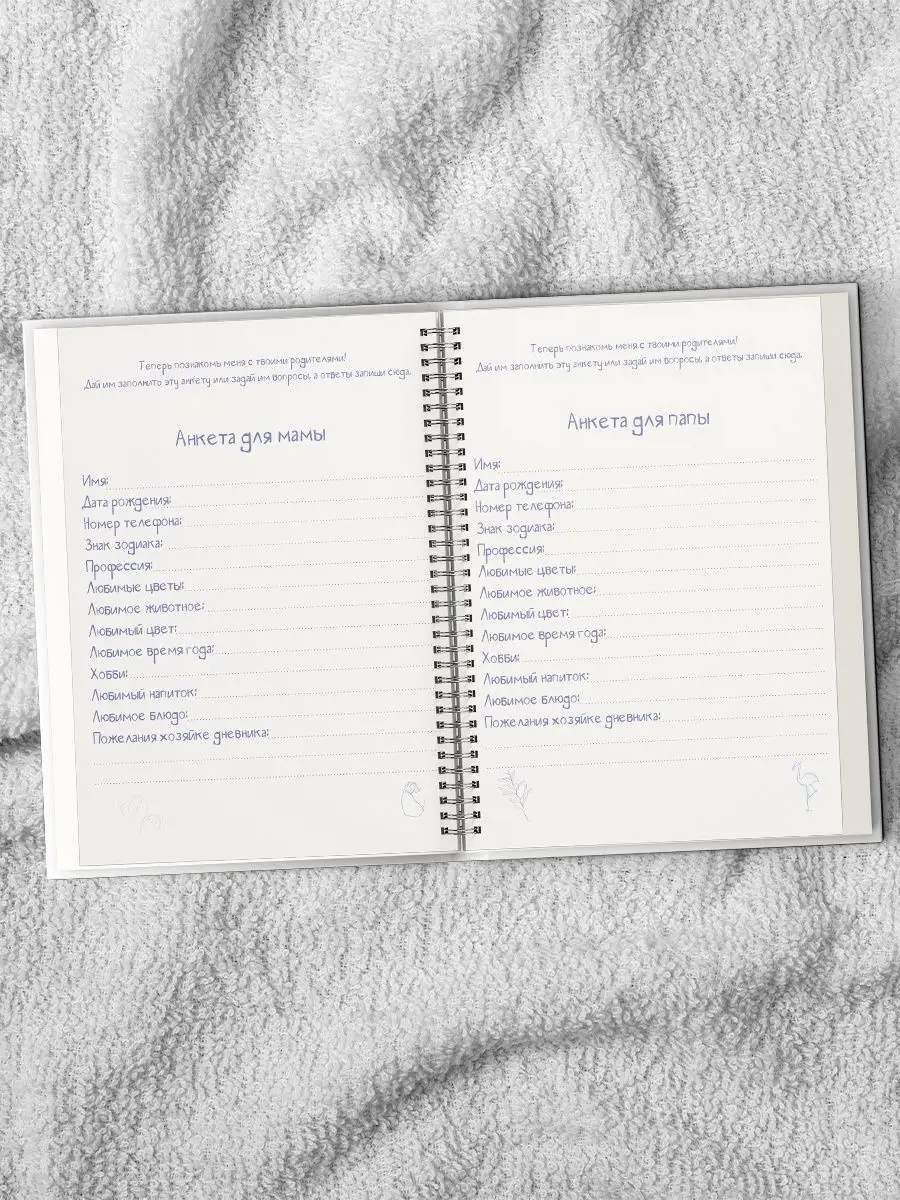 Теперь познакомь меня с твоими родителями!
Дай им заполнить эту анкету или задай им вопросы, а ответы запиши сюда.
Анкета для мамы
Имя:
Дата рождения:
Номер телефона:
Знак зодиака:
Профессия:
Любимые цветы:
Любимое животное:
Любимый цвет:
Любимое время года:
Хобби:
Любимый напиток:
Любимое блюдо:
Пожелания хозяйке дневника:
Теперь познакомь меня с твоими родителями!
Дай им заполнить эту анкету или задай им вопросы, а ответы запиши сюда.
Анкета для папы
Имя:
Дата рождения:
Номер телефона:
Знак зодиака:
Профессия:
Любимые цветы:
Любимое животное:
Любимый цвет:
Любимое время года:
Хобби:
Любимый напиток:
Любимое блюдо:
Пожелания хозяйке дневника: